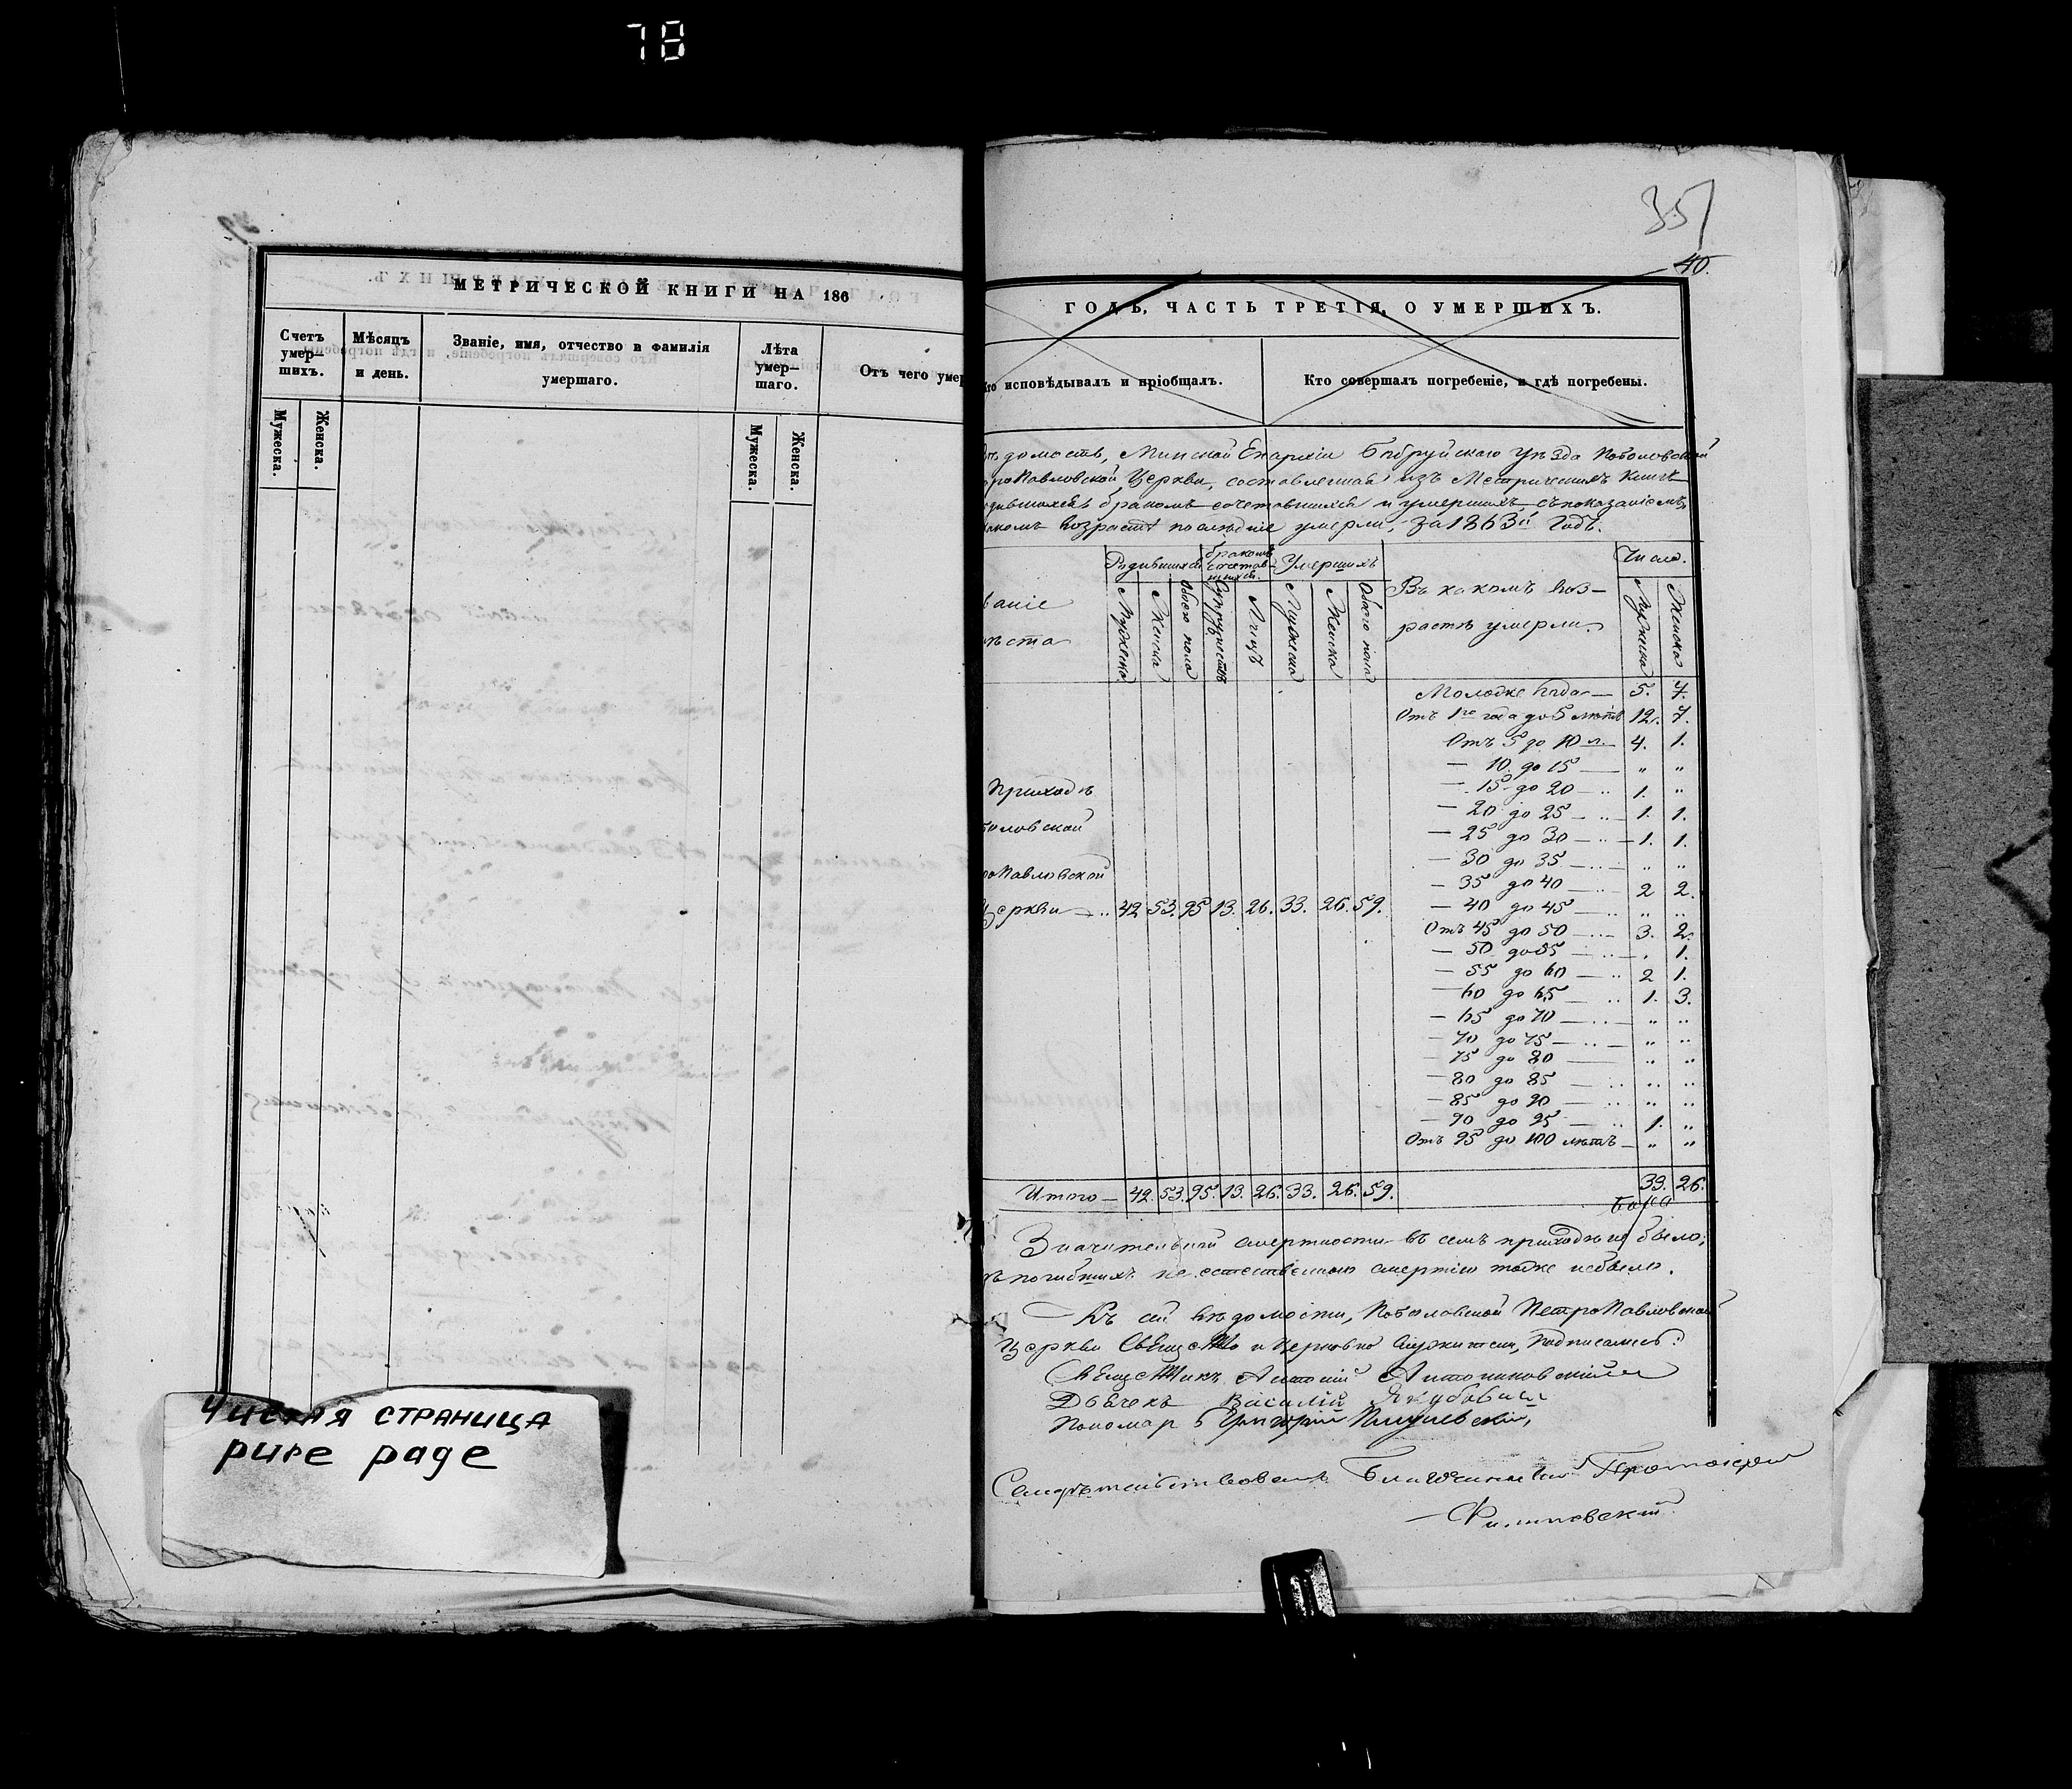 78
МЕТРИЧЕСКОЙ КНИГИ НА 186
Счетъ умер— шихъ.
Мѣсяцъ и день.
Званіе, имя, отчество и фамилія умершаго.
Лѣта умер— шаго.
Отъ чего умер
Мужеска.
Женска.
Мужеска.
Женска.
Чистая страница
pure page
35
40.
ГОДЪ, ЧАСТЬ ТРЕТІЯ, О УМЕРШИХЪ.
то исповѣдывалъ и пріобщалъ.
Кто совершалъ погребеніе, и гдѣ погребены.
домость, Минской Епархіи Бобруйскаго Уѣзда Поболовской
роПавловской Церкви, составленная изъ Метрическихъ Книгъ
дившихся бракомъ сочетавшихся и умершихъ, съ показаніемъ,
комъ возрастѣ послѣдніе умерли, за 1863й Годъ.
ваніе
ѣста
Родившихся
бракомъ сочетав— шихся.
Умершихъ
Въ какомъ воз—
растѣ умерли.
Число.
Мужеска
Женска
Обоего пола
Супружествъ
Лицъ
Мужеска
Женска
Обоего пола
Мужеска
Женска
Моложе года — 5. 7.
Отъ 1го года до 5 лѣтъ 12. 7.
Отъ 5 до 10 л. — 4. 1.
— 10 до 15 — „ „
— 15 до 20 — 1. „
— 20 до 25 — 1. 1.
— 25 до 30 — 1. 1.
— 30 до 35 — „ „
— 35 до 40 — 2 2.
— 40 до 45 — „ „
Отъ 45 до 50 — 3. 2.
— 50 до 55 — „ 1.
— 55 до 60 — 2 1.
— 60 до 65 — 1. 3.
— 65 до 70 — „ „
— 70 до 75 — „ „
— 75 до 80 — „ „
— 80 до 85 — „ „
— 85 до 90 — „ „
— 90 до 95 — 1. „
Отъ 95 до 100 лѣтъ — „ „
Приходѣ
оловской
роПавловской
Церкви — 42 53. 95 13. 26. 33. 26. 59.
Итого — 42. 53. 95. 13. 26. 33. 26. 59. 33. 26.
Значительной смертности въ семъ приходѣ не было;
погибшихъ не естественною смертію тоже небыло.
Къ сей вѣдомости, Поболовской ПетроПавловской
Церкви и Церковно Служители, подписались:
Антоній
Дьячекъ Василій Якубовичъ
Пономарь Григорій
Свидѣтельствовалъ Благочинный Протоіерей